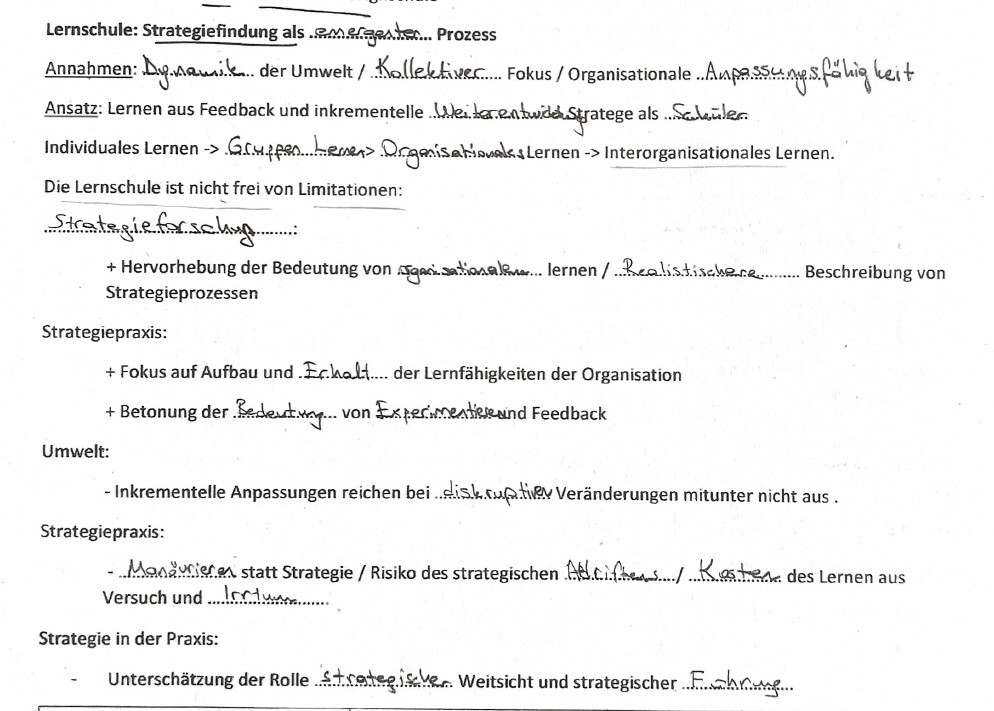 Lernschule: Strategiefindung als emergenter Prozess
Annahmen: Dynamik der Umwelt / Kollektiver Fokus / Organisationale Anpassungsfähigkeit
Ansatz: Lernen aus Feedback und inkrementelle Weiterentwicklung Stratege als Schüler
Individuales Lernen -> Gruppen Lernen > Organisationales Lernen -> Interorganisationales Lernen.
Die Lernschule ist nicht frei von Limitationen:
Strategieforschung:
+ Hervorhebung der Bedeutung von organisationalem lernen / Realistischere Beschreibung von
Strategieprozessen
Strategiepraxis:
+ Fokus auf Aufbau und Erhalt der Lernfähigkeiten der Organisation
+ Betonung der Bedeutung von Experimentieren und Feedback
Umwelt:
- Inkrementelle Anpassungen reichen bei diskruptiven Veränderungen mitunter nicht aus .
Strategiepraxis:
- statt Strategie / Risiko des strategischen Abdriftens / Kosten des Lernen aus
Versuch und Irrtum
Strategie in der Praxis:
- Unterschätzung der Rolle strategischer Weitsicht und strategischer Führung